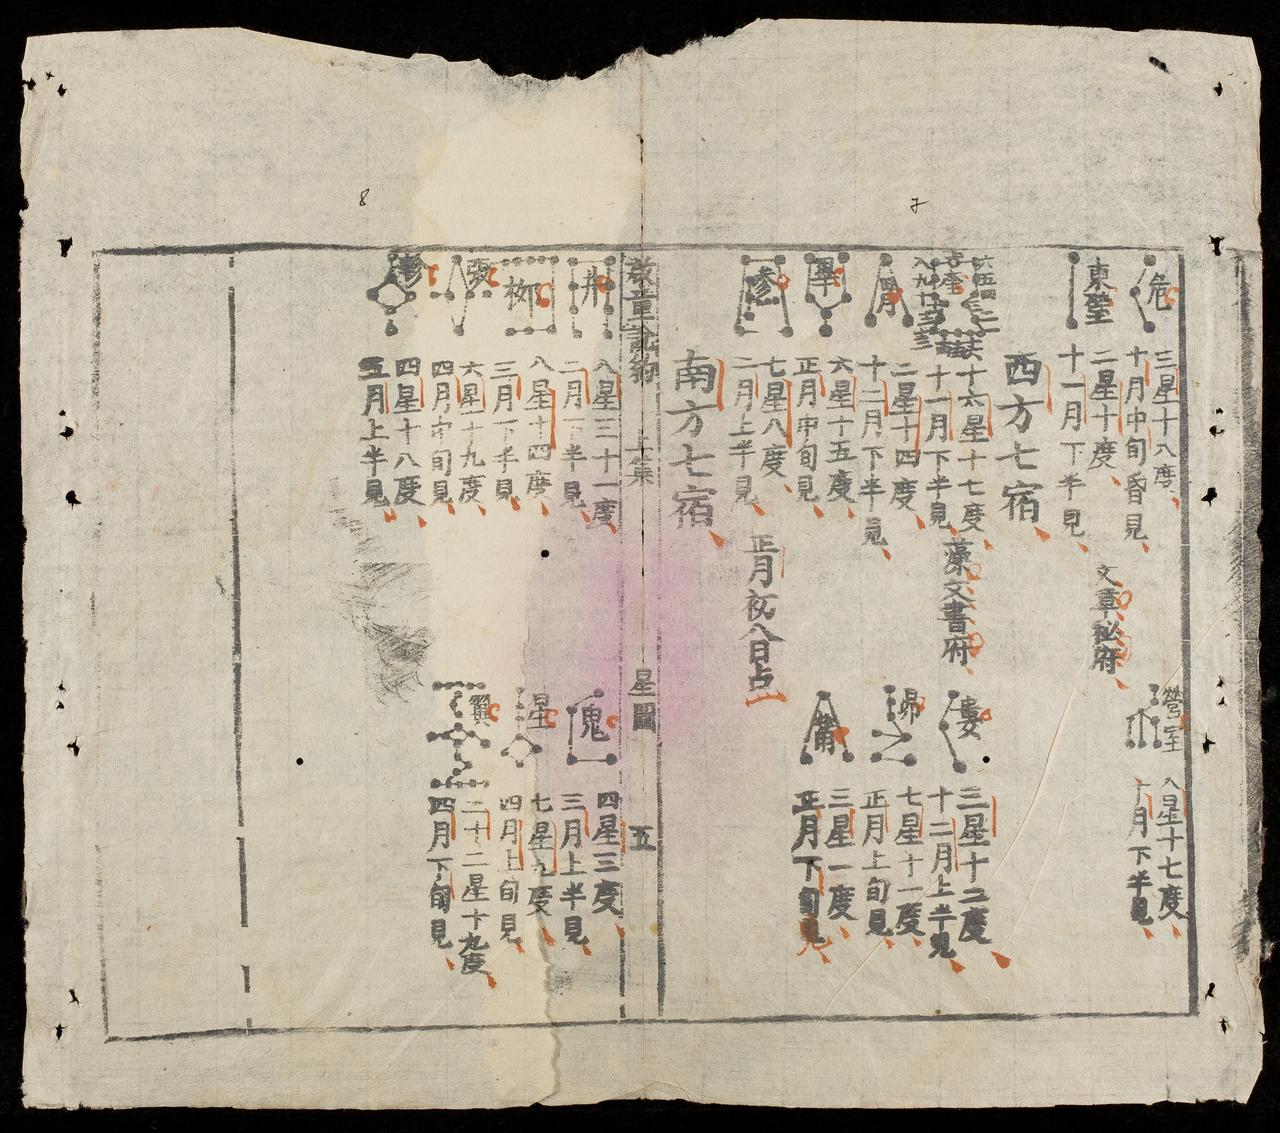 危
三星十八度
十月中旬昏見
營室
八星十七度
十月下半見
東璧
二星十度
十一月下半見
文章秘府
西方七宿
奎
十六星十七度
十一月下半見
藻文書府
婁
三星十二度
十二月上半見
胃
二星十四度
十二月下半見
昴
七星十一度
正月上旬見
畢
六星十五度
正月中旬見
觜
三星一度
正月下旬見
參
七星八度
二月上半見
正月初八日占
南方七宿
啟童說約
上集
星圖
五
井
八星三十一度
二月下半見
鬼
四星三度
三月上半見
柳
八星十四度
三月下半見
星
七星九度
四月上旬見
張
六星十九度
四月中旬見
翼
二十二星十九度
四月下旬見
軫
四星十八度
五月上半見
8